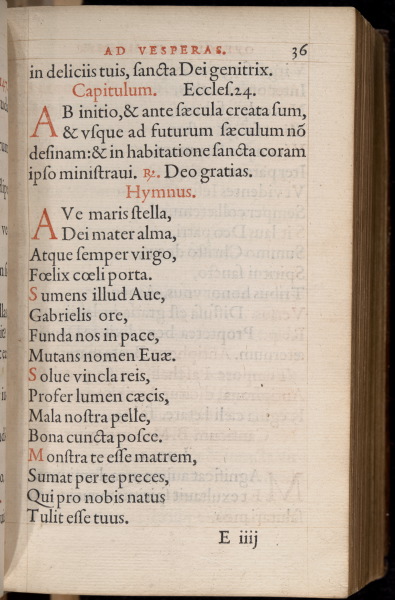 AD VESPERAS. 36
in deliciis tuis, ſancta Dei genitrix.
Capitulum. Eccleſ. 24.
AB initio, & ante ſæcula creata ſum,
& vſque ad futurum ſæculum nõ
deſinam: & in habitatione ſancta coram
ipſo miniſtraui. ℟. Deo gratias.
Hymnus.
AVe maris ſtella,
Dei mater alma,
Atque ſemper virgo,
Fœlix cœli porta.
Sumens illud Aue,
Gabrielis ore,
Funda nos in pace,
Mutans nomen Euæ.
Solue vincla reis,
Profer lumen cæcis,
Mala noſtra pelle,
Bona cuncta poſce.
Monſtra te eſſe matrem,
Sumat per te preces,
Qui pro nobis natus
Tulit eſſe tuus.
E iiij